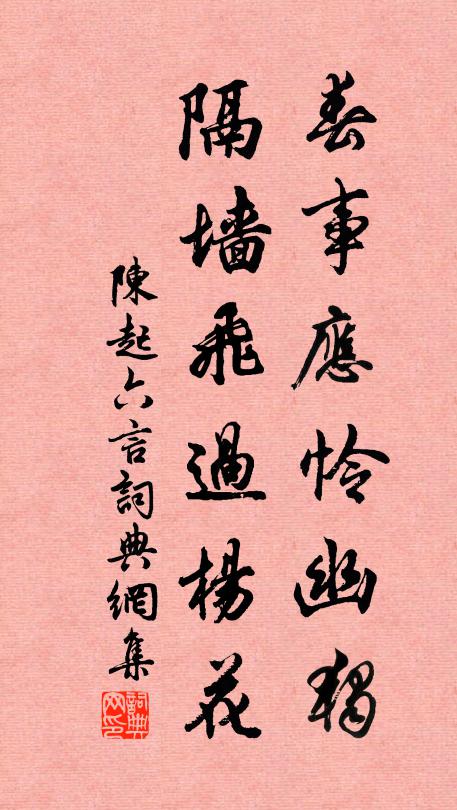 春事應怜幽獨
隔墻飛過楊花
陳起六言詞典網集
詞典網印